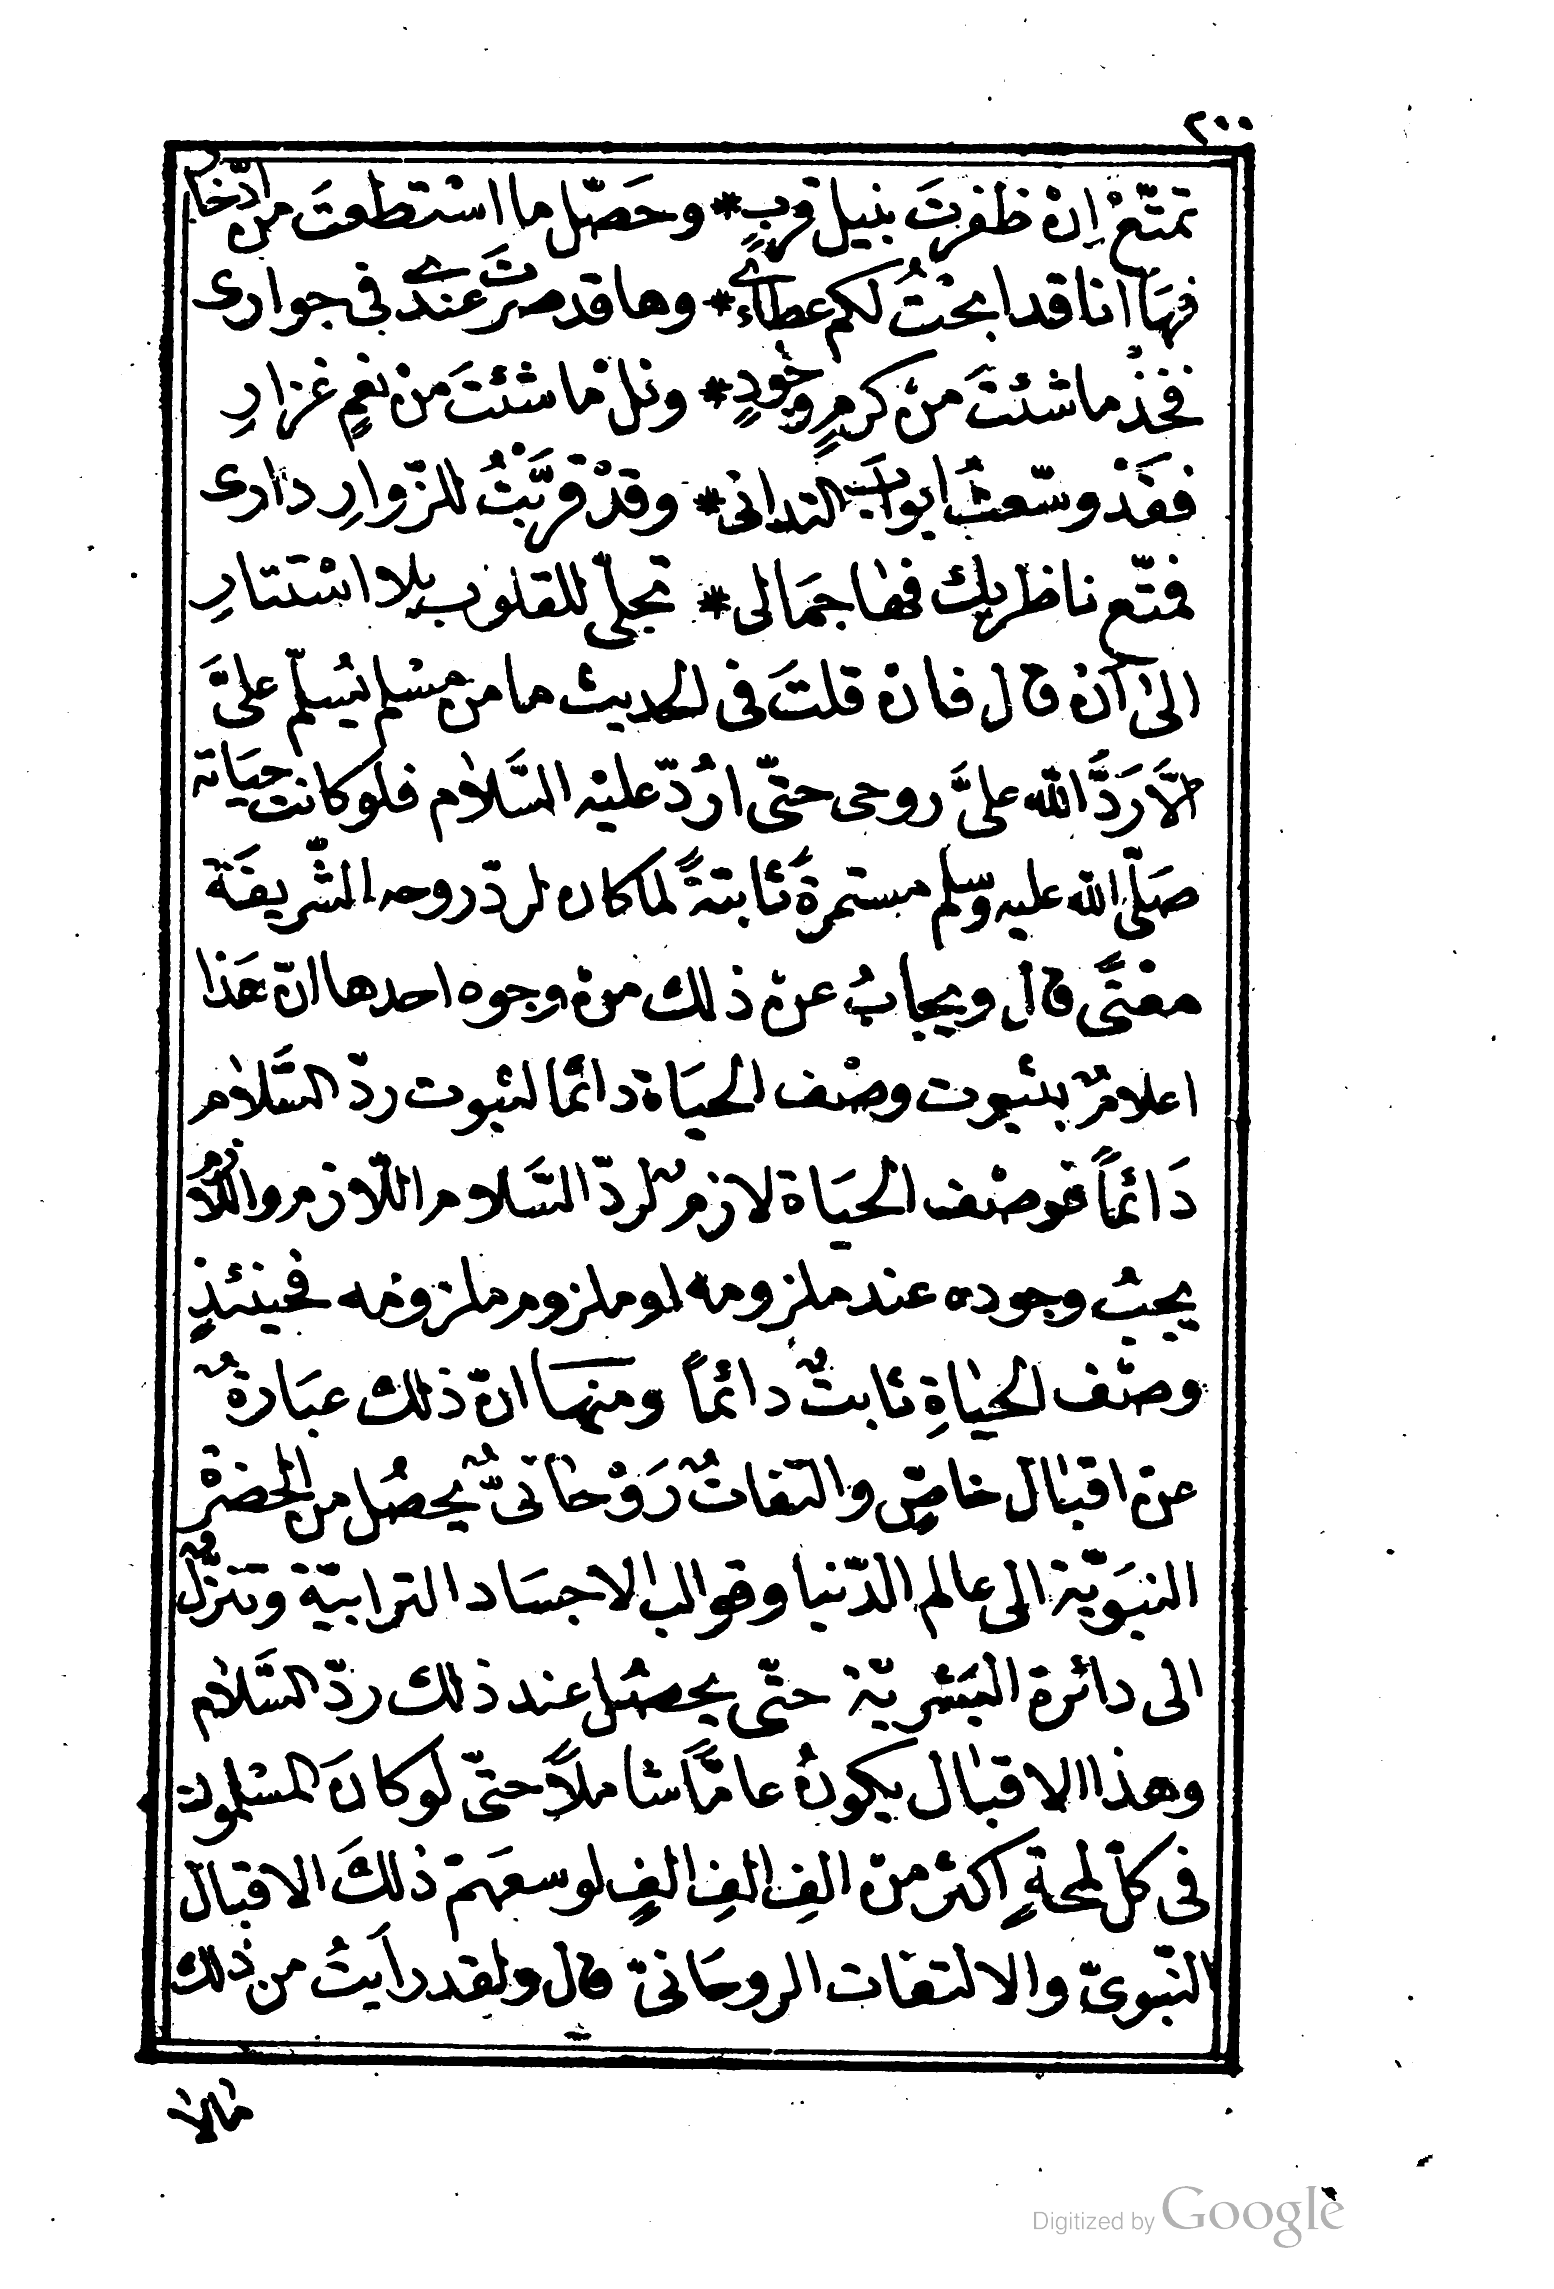 ٢٠٠
تمتّعْ اِنْ ظفرتَ بنيل قربٍ * وحَصّل ما اسْتطعتَ من ادّخار
فهَا انا قد ابحْتُ لكم عطائى * وها قد صرتَ عندى فى جوارى
فخذْ ما شئتَ منْ كرمٍ وجودٍ * ونلْ ما شئتَ منْ نعمٍ غزارِ
فقَدْ وسّعتُ ابوابَ التدانى * وقدْ قرَّبْتُ للزّوارِ دارى
فمتّع ناظريك فهٰا جمَالى * تجلّى للقلوب بلا اسْتتارِ
الىٰ انْ قال فانْ قلتَ فى الحديث ما من مسْلم يُسلّم علىَّ
الَّا رَدَّ الله علىَّ روحى حتّى ارُدّ عليْه السَّلام فلو كانت حيَاته
صَلّى الله عليه وسلم مستمرةً ثابتةً لما كان لردّ روحه الشّريفَة
معْنًى قال ويجابُ عنْ ذلك منْ وجوه احدها انّ هَذا
اعلامٌ بثبوت وصْف الحيَاة دائمًا لثبوت ردّ السَّلام
دَائماً فوصْف الحيَاة لازمٌ لردّ السَّلام اللّازم واللّازمُ
يجبُ وجوده عند ملزومه او ملزوم ملزومه فحينئذٍ
وصْف الحيٰاةِ ثابتٌ دائماً ومنهَا انّ ذلك عبَارةٌ
عنْ اقبٰال خاصٍّ والتفاتٌ رَوْحانىٌّ يحصُل من الحضرة
النبَويّة الى عالم الدّنيا وقوالب الاجسَاد الترابيّة وتنزّلٌ
الى دائرة البَشريّة حتّى يحصُل عند ذلك ردّ السَّلام
وهذا الاقبٰال يكونُ عامًّا شاملًا حتّى لو كانَ المسْلمون
فى كلّ لمحةٍ اكثر منْ الفِ الفِ الفٍ لوسعَهمْ ذلكَ الاقبال
النّبوىّ والالتفات الروحَانىّ قال ولقد رأيتُ من ذلك
مالا
Digitized by Google